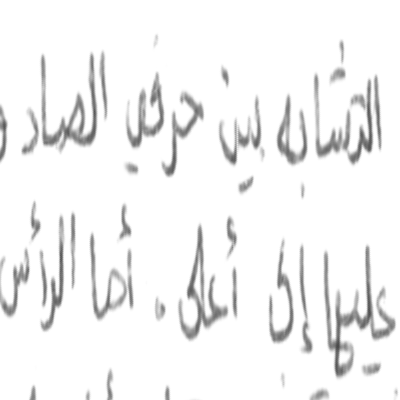 التشابه بين حرفي الصاد و
عليها إلى أعلى. أما الرأس